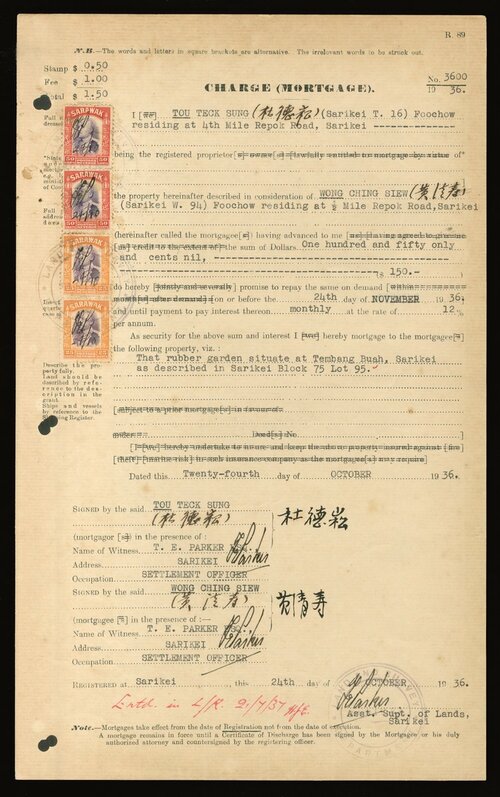 R. 89
N.B.—The words and letters in square brackets are alternative. The irrelevant words to be struck out.
Stamp $ 0.50
Fee $ 1.00
Total $ 1.50
CHARGE (MORTGAGE).
No. 3600
19 36.
I [we] TOU TECK SUNG (杜德崧) (Sarikei T. 16) Foochow
residing at 4th Mile Repok Road, Sarikei
being the registered proprietor[s] owner[s] [lawfully entitled to mortgage by virtue of
the property hereinafter described in consideration of WONG CHING SIEW
(Sarikei W. 94) Foochow residing at ½ Mile Repok Road, Sarikei
(hereinafter called the mortgagee[s] having advanced to me [us] [having agreed to give me
[us] credit to the extent of] the sum of Dollars One hundred and fifty only
and cents nil,
($ 150.-)
do hereby [jointly and severally] promise to repay the same on demand [within
months after demand] [on or before the 24th day of NOVEMBER 1936]
and until payment to pay interest thereon monthly at the rate of 12%
per annum.
As security for the above sum and interest I [we] hereby mortgage to the mortgagee[s]
the following property, viz.:
That rubber garden situate at Tembang Buah, Sarikei
as described in Sarikei Block 75 Lot 95.
Describe the property fully.
Land should be
described by reference
to the description
in the
grant.
Ships and vessels
by reference to the
Shipping Register.
[subject to a prior mortgage[s] in favour of
Deed[s] No.
[I [we] hereby undertake to insure and keep the above property insured against [fire]
[theft] [marine risk] in such insurance company as the mortgagee[s] may require]
Dated this Twenty-fourth day of OCTOBER 1936.
SIGNED by the said TOU TECK SUNG
(杜德崧)
杜德崧
(mortgagor [s]) in the presence of:
Name of Witness T. E. PARKER Esq.
Address SARIKEI
Occupation SETTLEMENT OFFICER
SIGNED by the said WONG CHING SIEW
黄清寿
(mortgagee [s]) in the presence of:—
Name of Witness T. E. PARKER Esq.
Address SARIKEI
Occupation SETTLEMENT OFFICER
REGISTERED at Sarikei, this 24th day of OCTOBER, 1936.
Entd. in L/R. 21/7/37
Asst. Supt. of Lands,
Sarikei
Note.—Mortgages take effect from the date of Registration not from the date of execution.
A mortgage remains in force until a Certificate of Discharge has been signed by the Mortgagee or his duly
authorized attorney and countersigned by the registering officer.
SARAWAK
SARAWAK
SARAWAK
SARAWAK